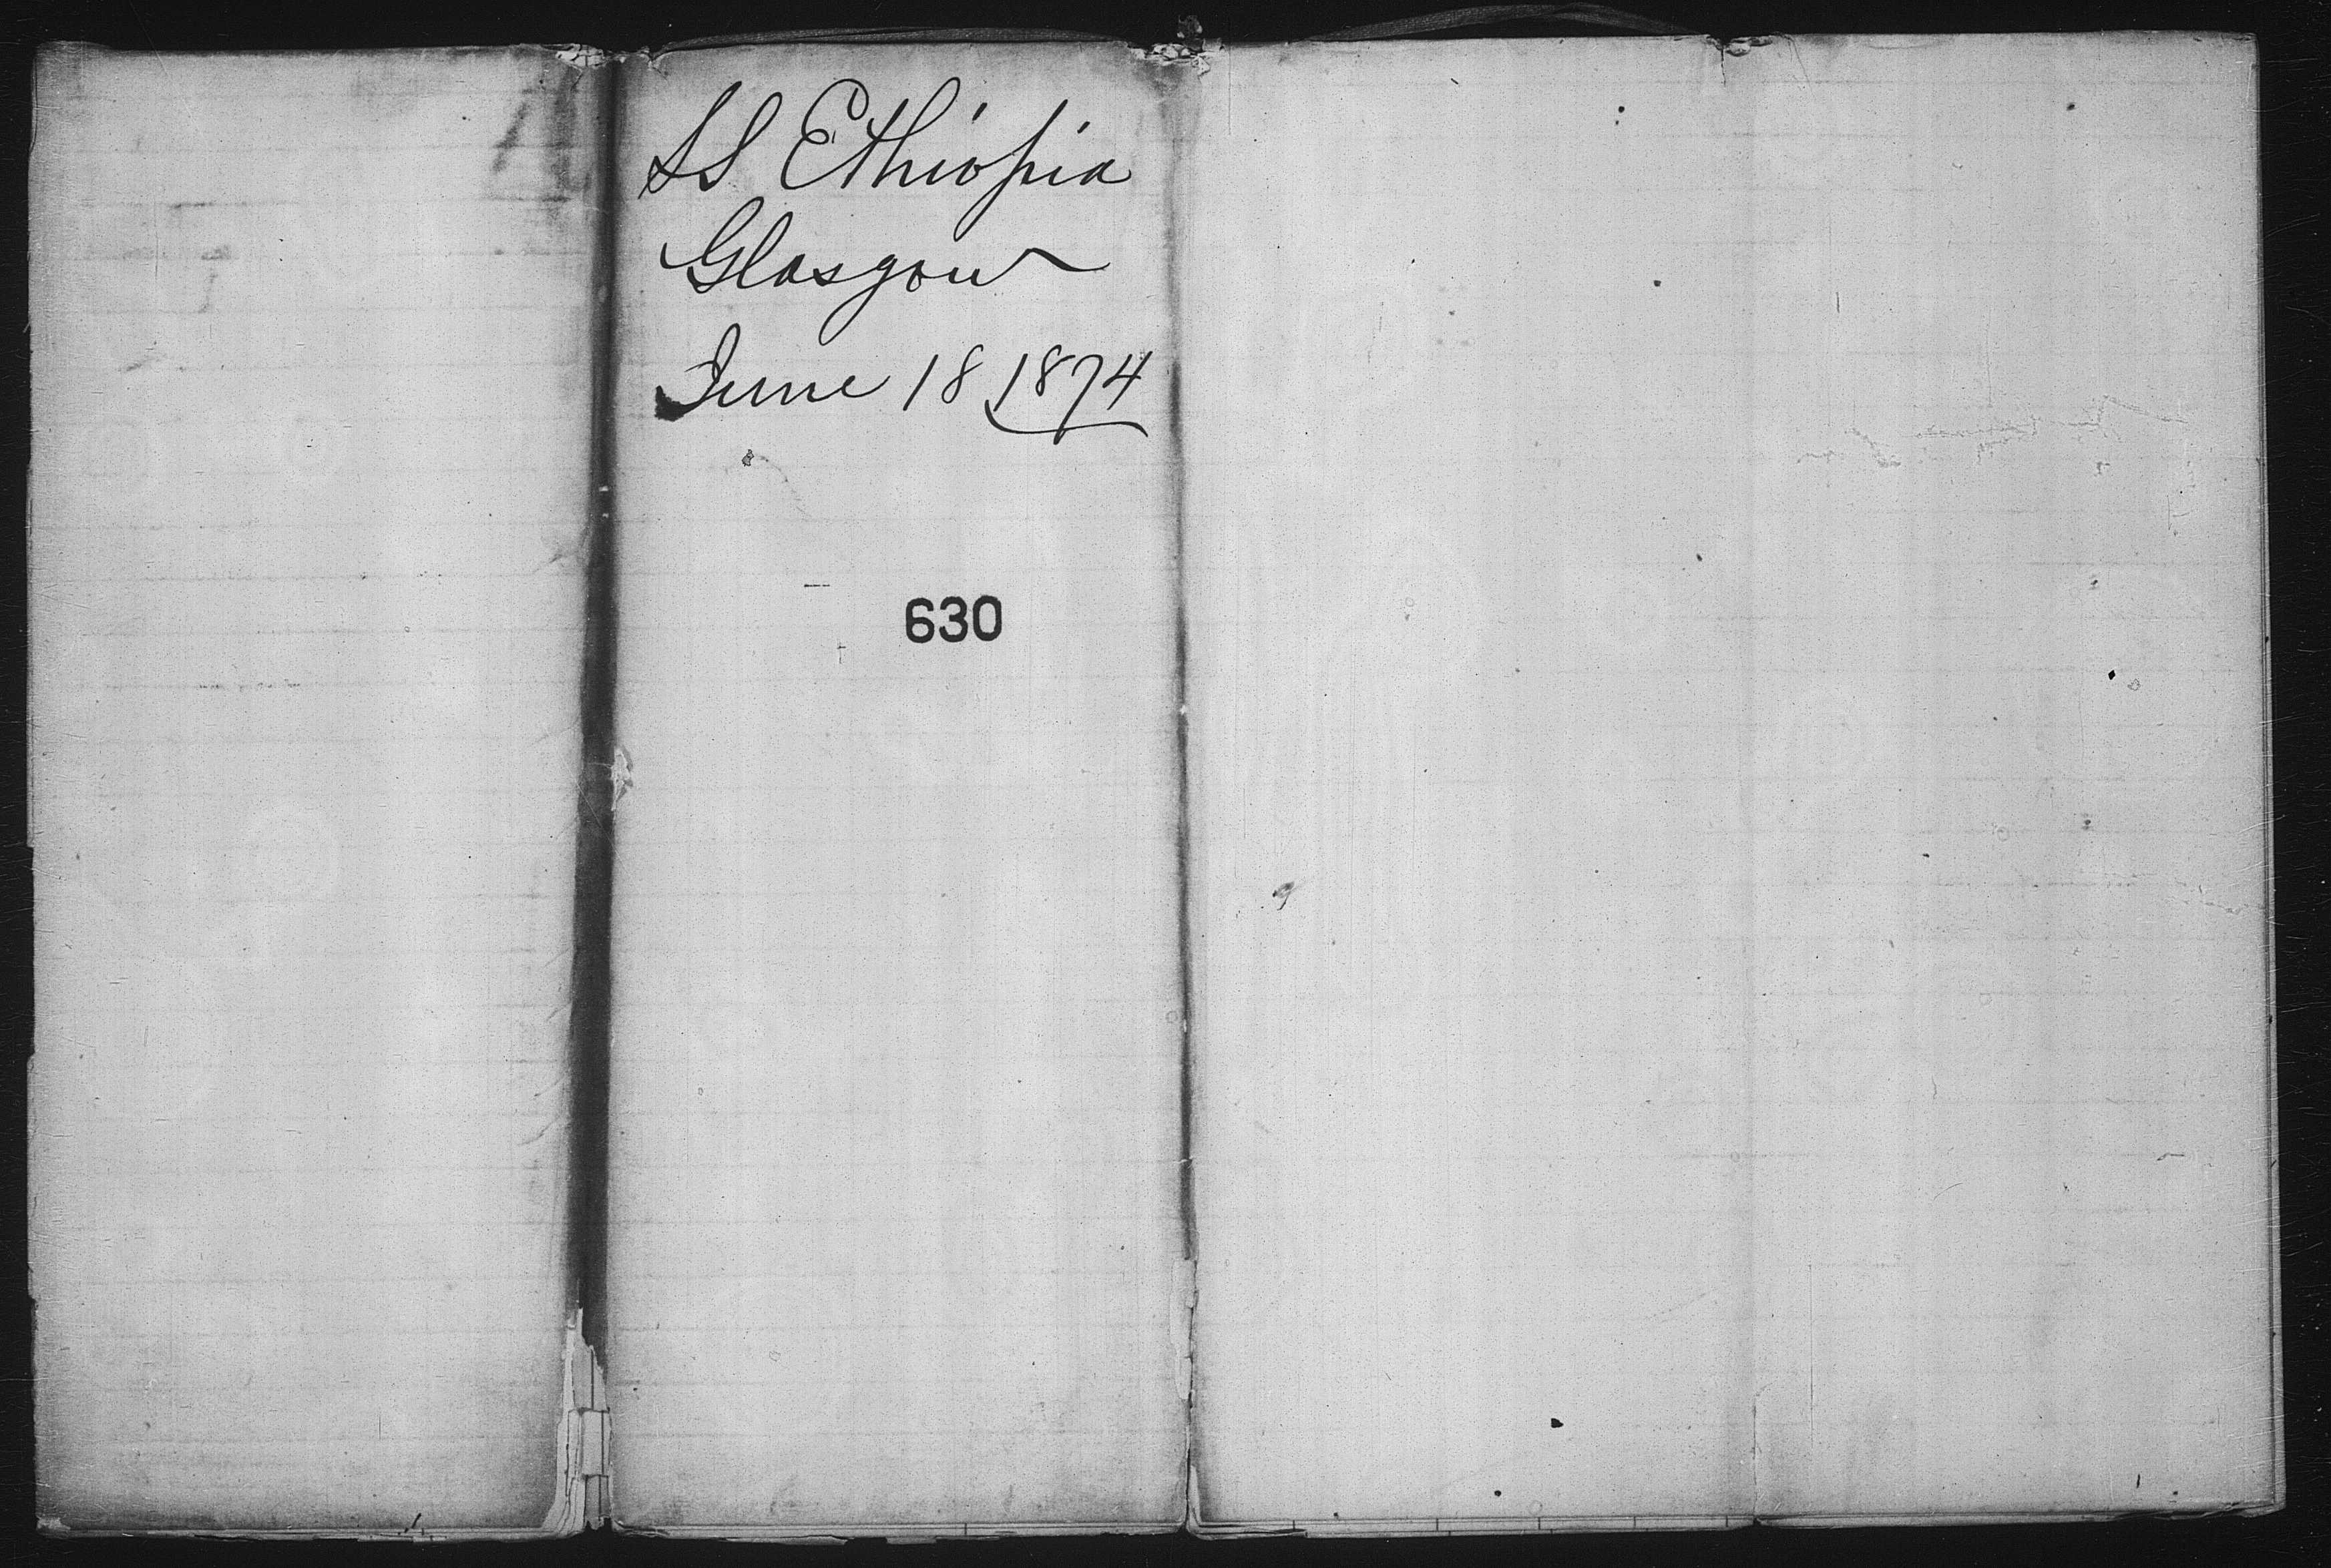 SS Ethiopia
Glasgow
June 18 1874
630